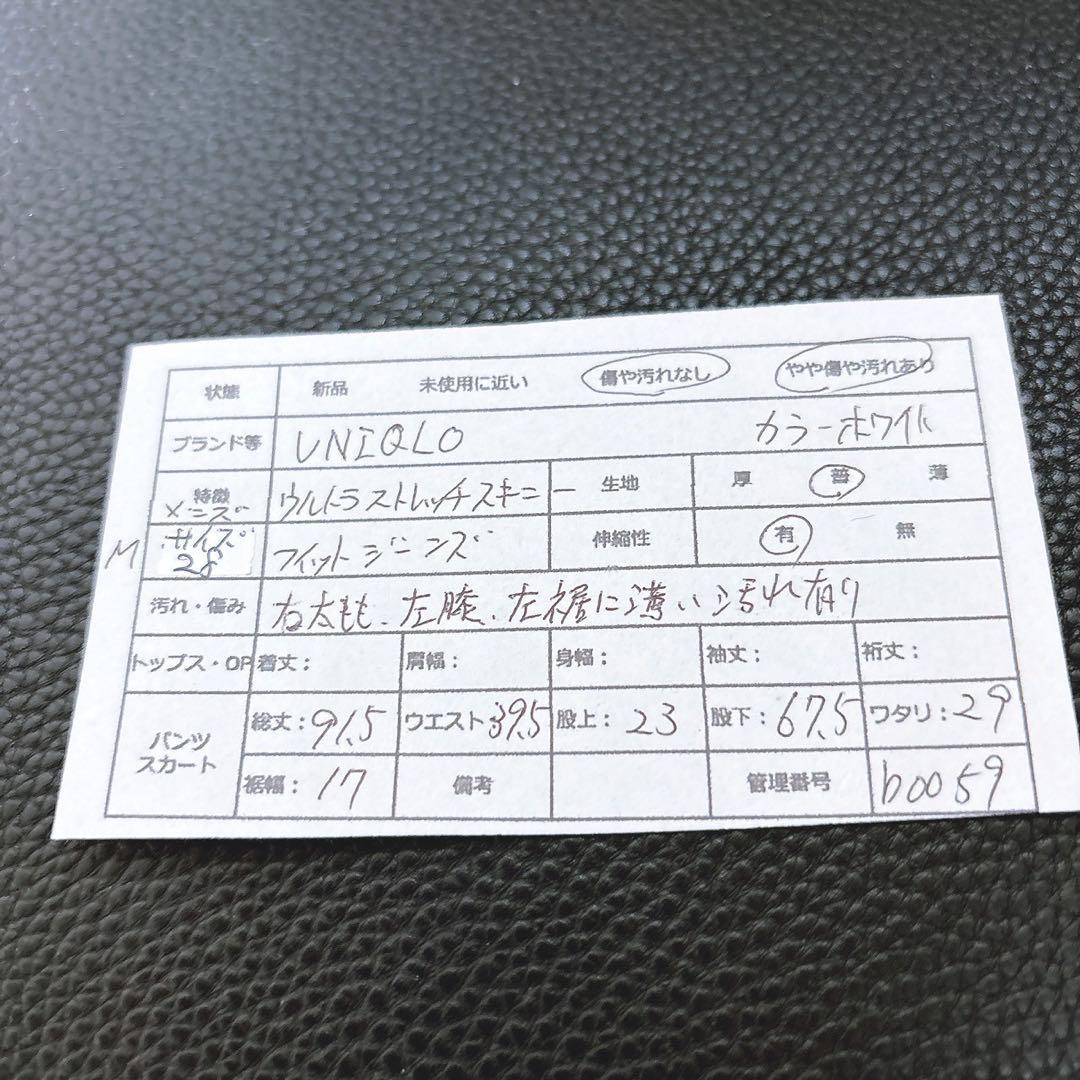 状態 新品 未使用に近い 傷や汚れなし やや傷や汚れあり
ブランド等 UNIQLO カラーホワイト
特徴 メンズ ウルトラストレッチスキニー 生地 厚 普 薄
M サイズ 28 フィットジーンズ 伸縮性 有 無
汚れ・傷み 右太もも、左膝、左裾に薄い汚れ有り
トップス・OP 着丈: 肩幅: 身幅: 袖丈: 裄丈:
パンツ スカート 総丈:91.5 ウエスト:39.5 股上:23 股下:67.5 ワタリ:29
裾幅:17 備考 管理番号 b0059